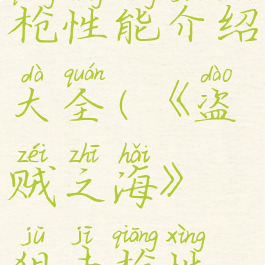 枪性能介绍
dà quán dào
大全(《盗
zéi zhī hǎi
贼之海》
jū jī qiāng xìng
狙击枪性